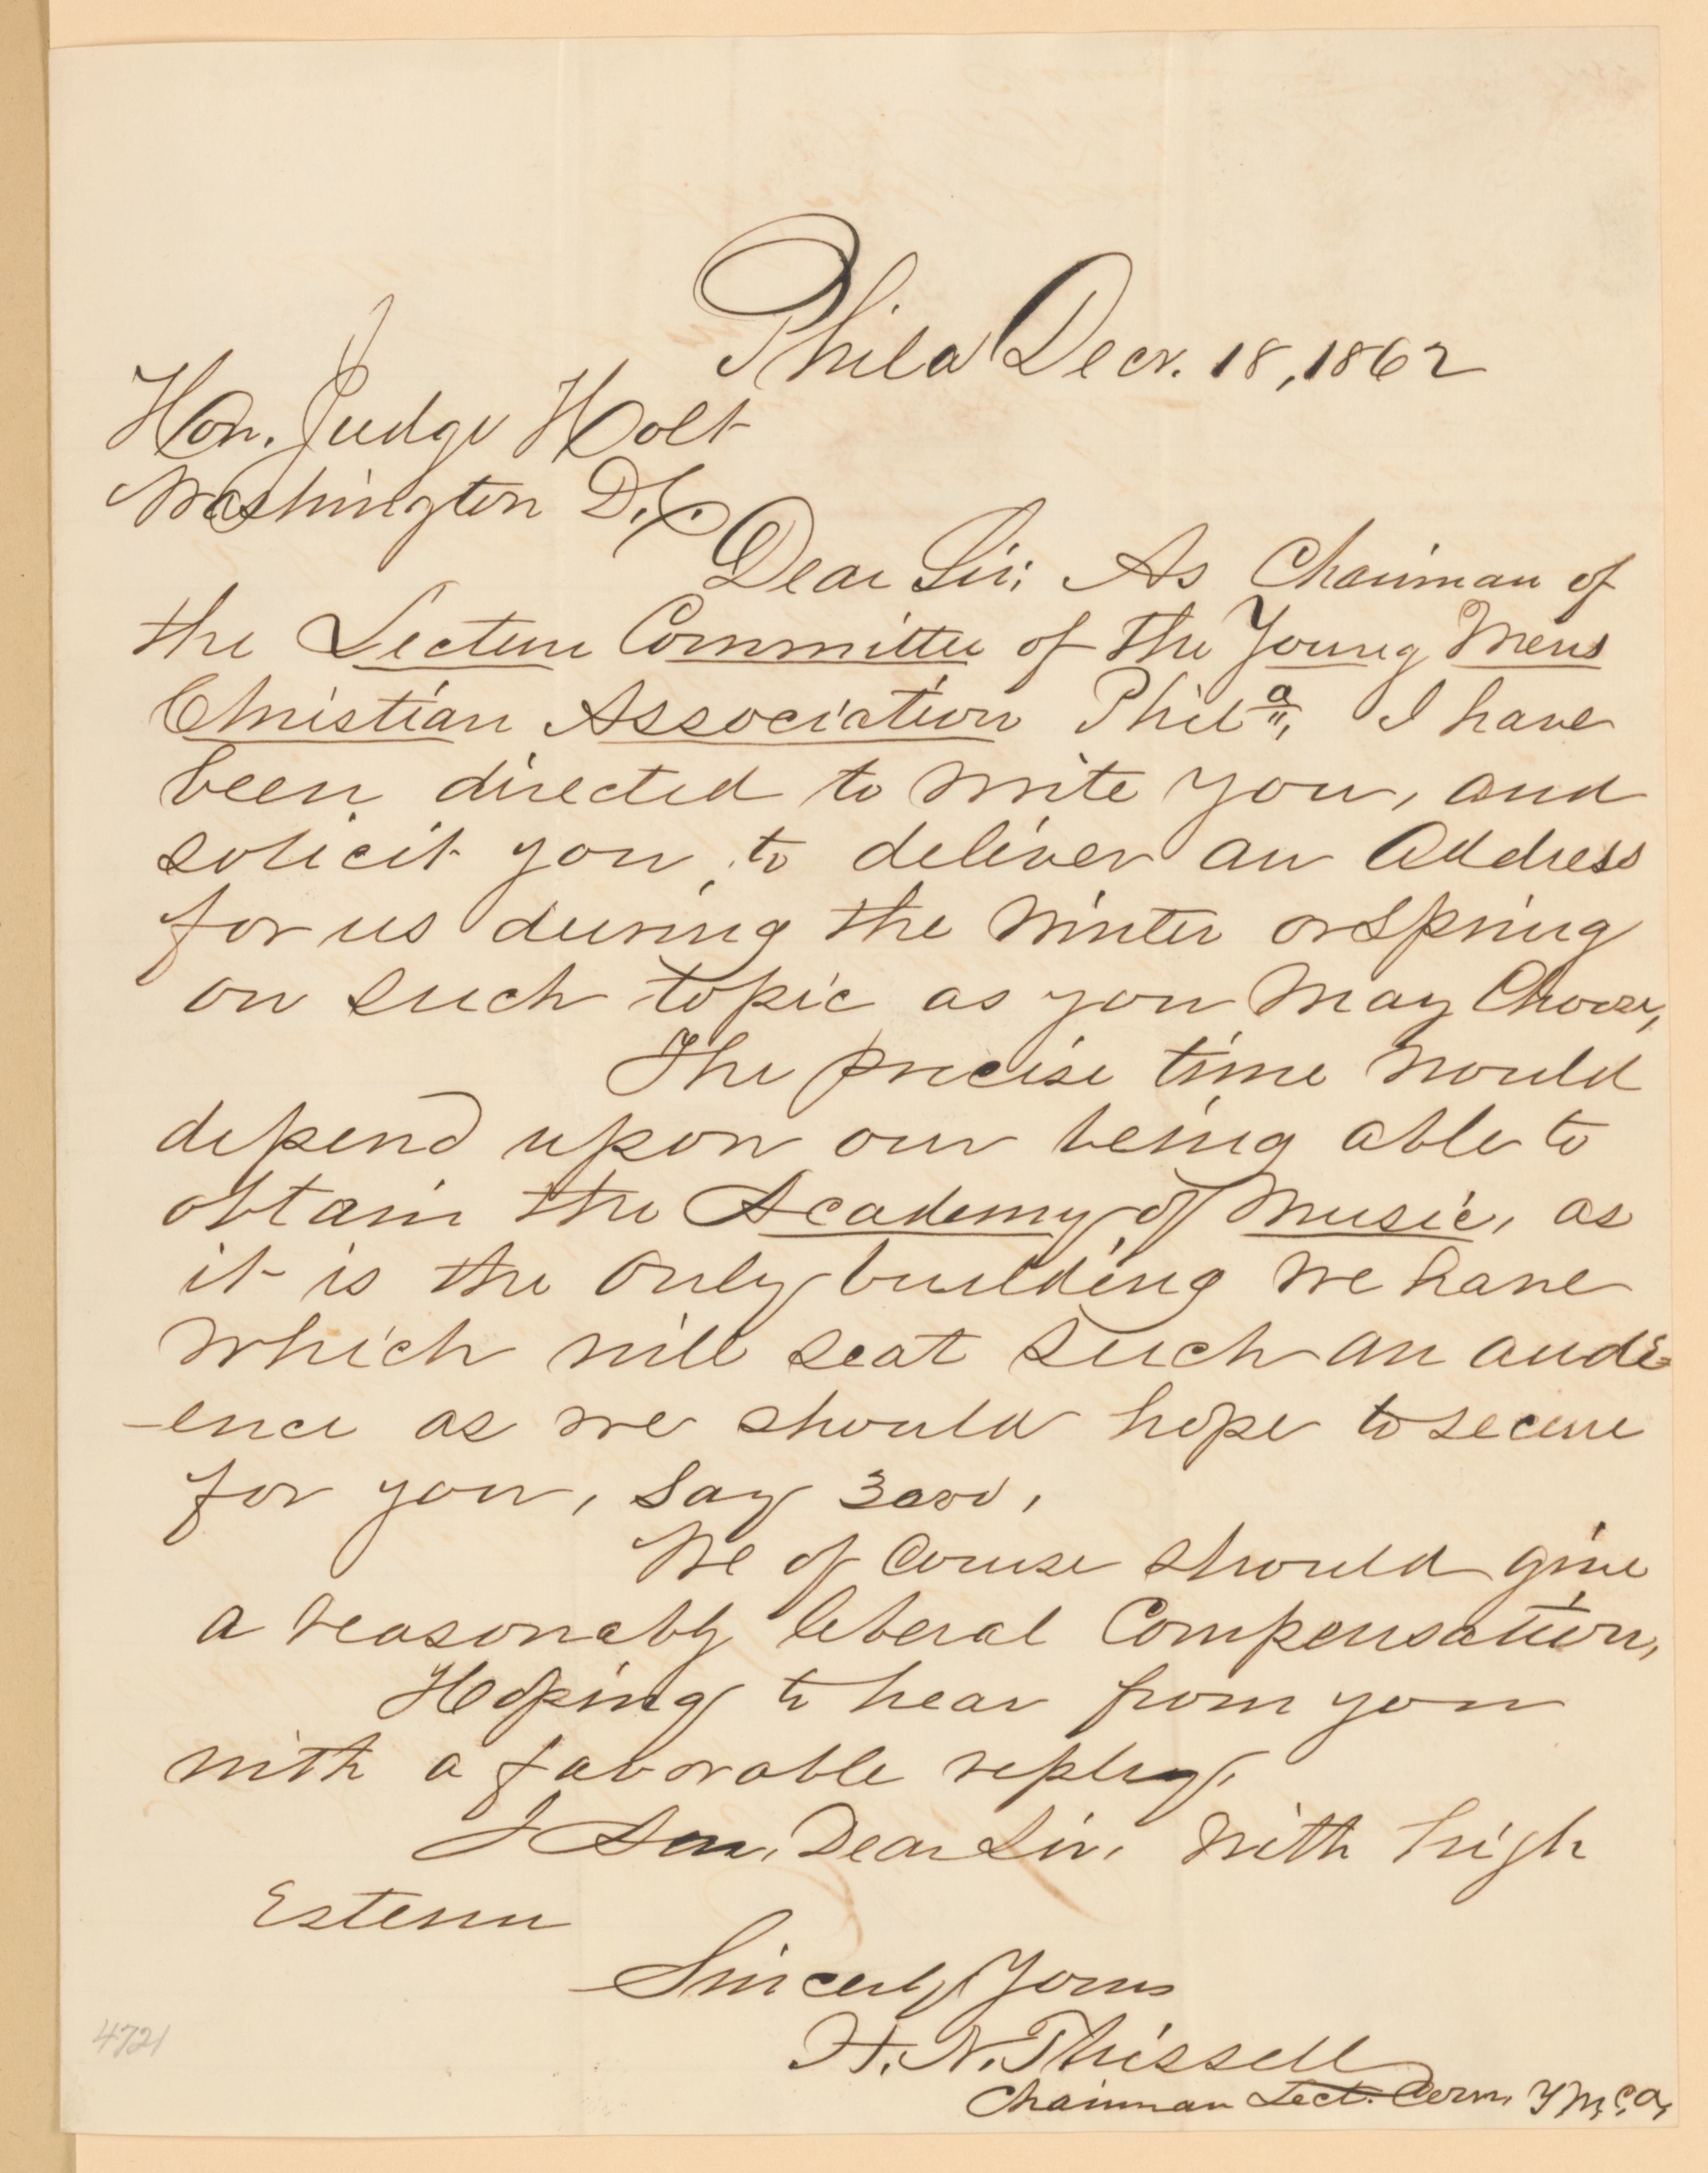 Phila Decr. 18, 1862
Hon. Judge Holt
Washington D.C.
Dear Sir; As Chairman of
the Lecture Committee of the Young Mens
Christian Association Phila, I have
been directed to write you, and
solicit you, to deliver an Address
for us during the Winter or Spring
on such topic as you may Choose,
The precise time would
depend upon our being able to
obtain the Academy of Music, as
it is the only building we have
which will seat such an audi-
-ence as we should hope to secure
for you, say 3000,
We of Course should give
a reasonably liberal Compensation,
Hoping to hear from you
with a favorable reply,
I Am, Dear Sir, With high
Esteem
Sincerely Yours
H. N. Thissell
Chairman Lect. Com. Y M, C, A,
4721